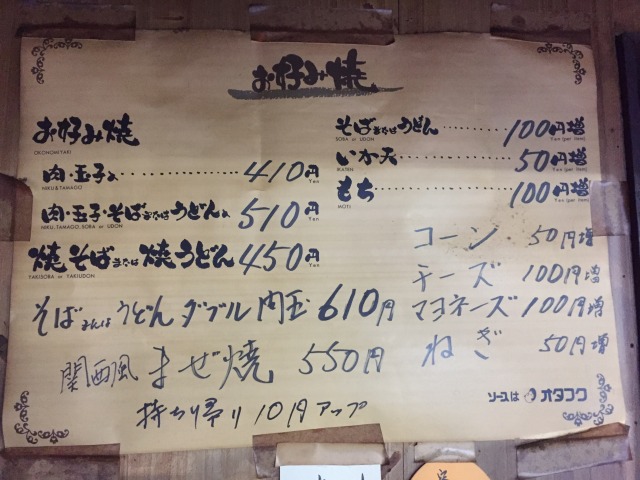 お好み焼
お好み焼
OKONOMIYAKI
肉・玉子入 410円
NIKU&TAMAGO Yen
肉・玉子・そばまたはうどん入 510円
NIKU, TAMAGO, SOBA or UDON Yen
焼そばまたは焼うどん 450円
YAKISOBA or YAKIUDON Yen
そばまたはうどんダブル肉玉 610円
関西風まぜ焼 550円
持ち帰り10円アップ
そばまたはうどん 100円増
SOBA or UDON Yen (per item)
いか天 50円増
IKATEN Yen (per item)
もち 100円増
MOTI Yen (per item)
コーン 50円増
チーズ 100円増
マヨネーズ 100円増
ねぎ 50円増
ソースは オタフク